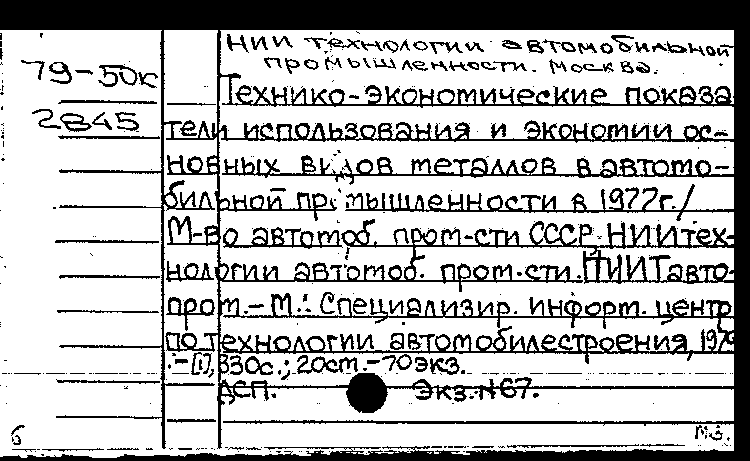 НИИ технологии автомобильной
промышленности. Москва.
79-50к
Технико-экономические показа
2845
тели использования и экономии ос-
новных видов металлов в автомо-
бильной промышленности в 1977г./
М-во автомоб. пром-сти СССР, НИИ тех-
нологии автомоб. пром-сти. НИИТавто-
пром.-М.: Специализир. информ. центр
по технологии автомобилестроения, 1979
.-[1], 330с.; 20см.-70экз.
ДСП. Экз.№67.
6
М3.